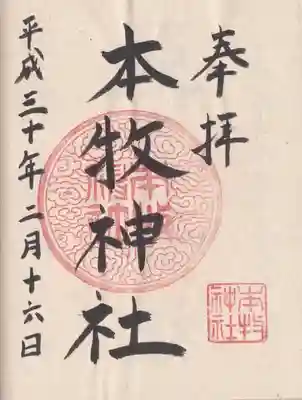 奉拝
本牧神社
平成三十年二月十六日
本牧
神社
本牧
神社